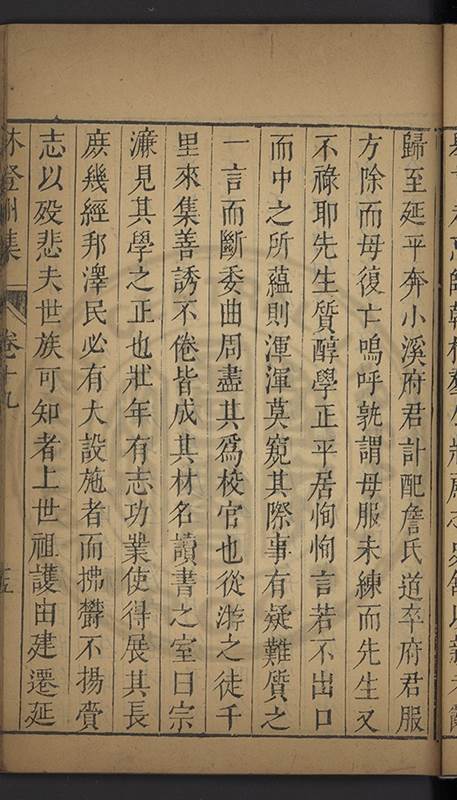 歸至延平奔小溪府君訃配詹氏道卒府君服
方除而母復亡嗚呼孰謂母服未練而先生又
不祿耶先生質醇學正平居恂恂言若不出口
而中之所蘊則渾渾莫窺其際事有疑難質之
一言而斷委曲周盡其爲校官也從游之徒千
里來集善誘不倦皆成其材名讀書之室曰宗
濂見其學之正也壯年有志功業使得展其長
庶幾經邦澤民必有大設施者而拂欝不揚賫
志以殁悲夫世族可知者上世祖護由建遷延
林登州集
卷十九